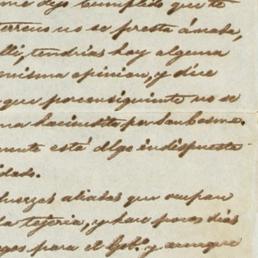 me dijo cumplido que te
terreno no se presta á nada,
allí, tendrías hoy alguna
misma opinion, y dice
que por consiguiente no se
una haciendita por tan
mente está algo indispuesta
idad.
fuerzas aliadas que ocupan
la tejeria, y hace pocos dias
para el Gob.º y aunque